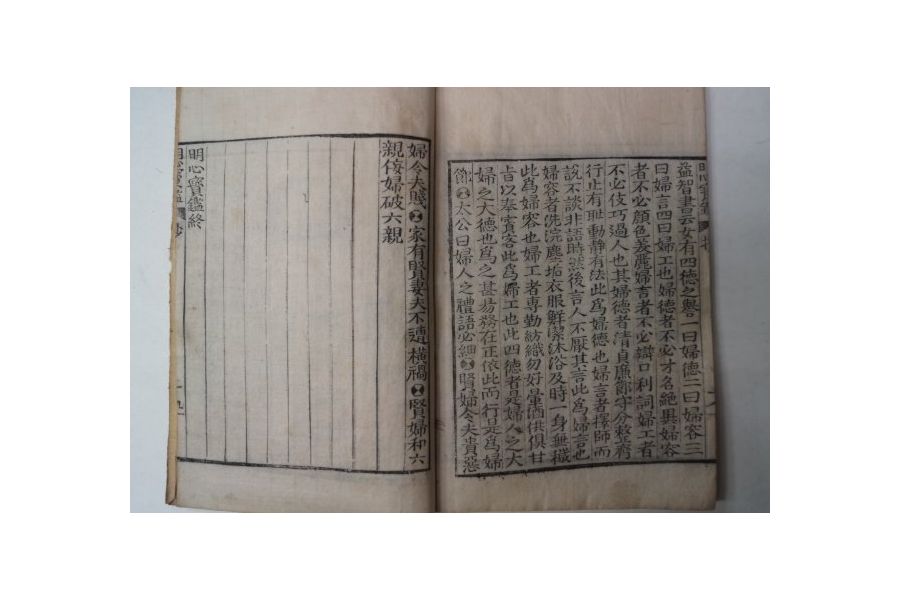 益智書云女有四德之譽一曰婦德二曰婦容三
曰婦言四曰婦工也婦德者不必才名絶異婦容
者不必顔色美麗婦言者不必辯口利詞婦工者
不必伎巧過人也其婦德者淸貞廉節守分整齊
行止有耻動靜有法此爲婦德也婦言者擇師而
說不談非語時然後言人不厭其言此爲婦言也
婦容者洗浣塵垢衣服鮮潔沐浴及時一身無穢
此爲婦容也婦工者專勤紡織勿好暈酒供俱甘
旨以奉賓客此爲婦工也此四德者是婦人之大
婦之大德也爲之甚易務在正依此而行是爲婦
節太公曰婦人之禮語必細賢婦令夫貴惡
婦令夫賤家有賢妻夫不遭橫禍賢婦和六
親侫婦破六親
明心寶鑑終
明心寶鑑 抄